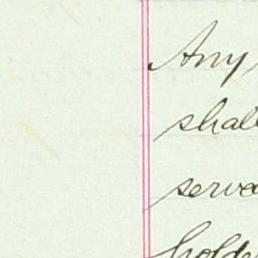 Any
shall
serva
holde